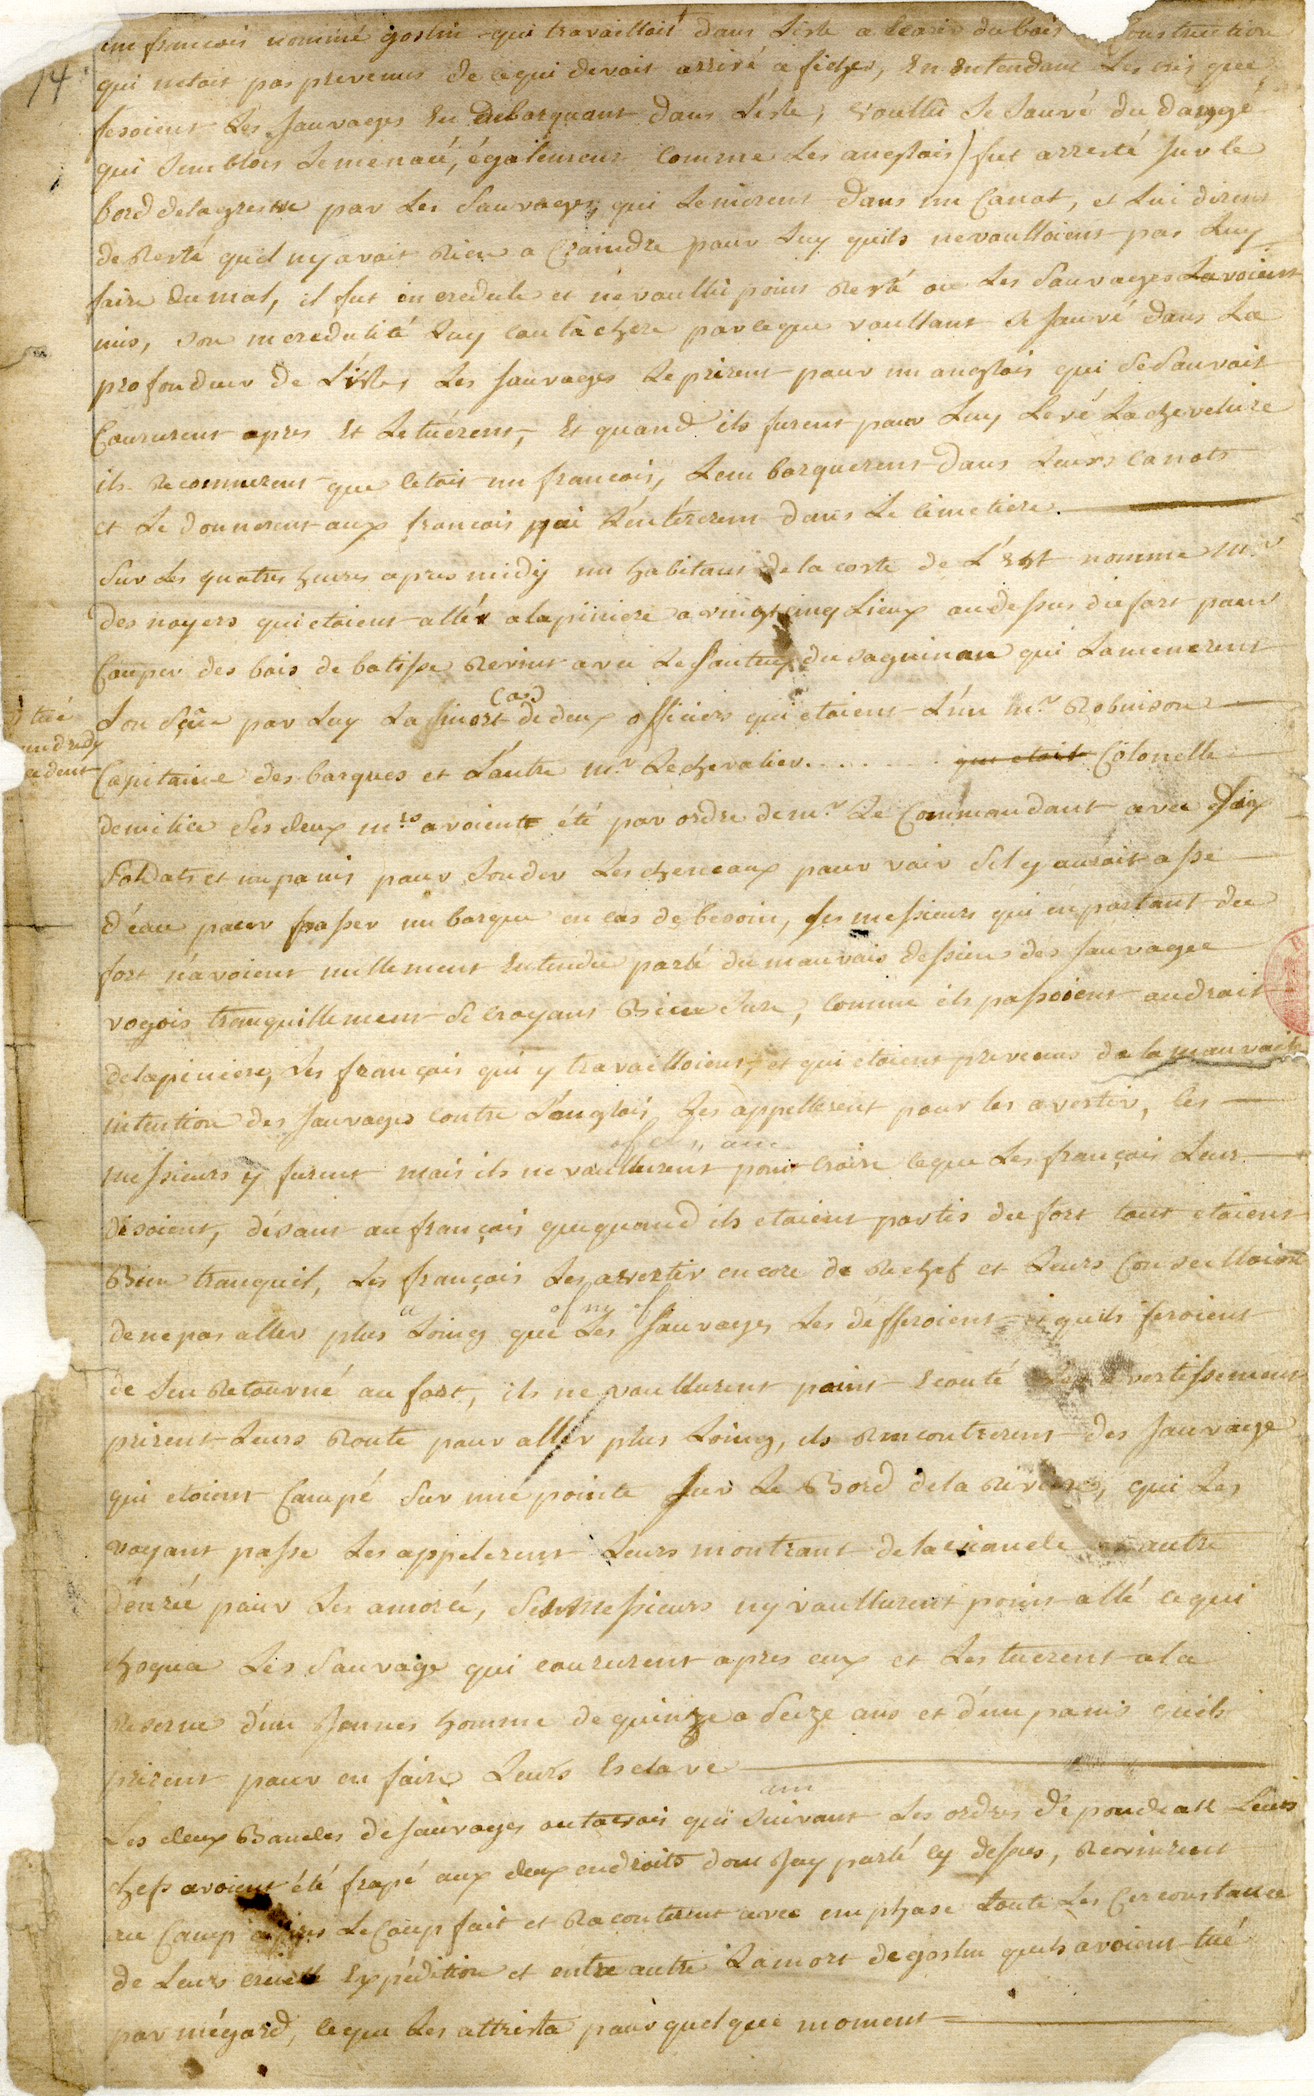 14
un francois nommé goslin qui travailloit dans Liste a Ecarir du bois Construction
qui netoit pas prevenus de cequi devoit arrivé a sichez, En Entendant Les cris que
fesoient Les Sauvages En Debarquant dans Liste, voullu Se Sauvé du dangé
qui Sembloit Lemenacé, également Comme Les anglois) fut arresté Sur le
bord delagreve par Les Sauvages, qui Lemirent dans un Canot, et Lui dirent
deResté quil ny avoit Rien a Craindre pour Luy quils nevoulloient pas Luy
faire Du mal, il fut incredule et nevoullu point Resté ou Les Sauvages Lavoient
mis, Son incredulité Luy couta chere parceque voullant Se Sauvé dans La
profondeur de L'isles Les Sauvages Leprirent pour un anglois qui SeSauvoit
Coururent apres Et Letuérent, Et quand ils furent pour Luy Levé Lachevelure
ils Reconnurent que cetoit un francois, Lembarquerent dans Leurs Canots
et Le donnerent aux francois qui L'entérerent dans Le Cimetiere.
Sur Les quatres heures apres midy un habitant de la coste de L'Est nomme Mr
des noyers qui etoient allér alapiniere a vingt cinq Lieux audessus du fort pour
Couper des bois de batisse Revint avec Le Sauteux du Saguinau qui Lamenerent
Cas
Lon Sçûe par Luy La mort de deux officiers qui etoient L'un Mr Robinson
tué
Capitaine des barques et L'autre Mr Lechevalier. . . . . . . . qui etoit Colonelle
demilice Ses deux mrs avoient été par ordre demr Le Commandant avec Six
Soldats et un panis pour Sonder Les cheneaux pour voir Sil y auroit assé
d'éau pour passer un barque en cas de besoin, Ses messieurs qui en partant du
fort n'avoient nullement Entendu parlé du mauvais dessiens des Sauvage
vogois tranquillement Se croyant Bien Sure, Comme ils passoient audroit
delapiniere, Les français qui y travailloient, et qui etoient prevenus de la mauvaise
intention des Sauvages contre L'anglois, Les appellerent pour les avertir, Ces
messieurs y furent mais ils ne voullurent point Croire ceque Les français Leur
disoient, désant au français que quand ils etoient partis du fort tout etoient
Bien tranquil, Les français Les avertir encore de Rechef et Leurs Conseilloient
denepas aller plus Loing que Les Sauvages Les défferoient quils feroient
de Sen Retourné au fort, ils ne voullurent point Ecouté avertissement
prirent Leurs Route pour aller plus Loing, ils Rencontrerent des Sauvage
qui etoient Campé Sur une pointe Sur Le Bord dela Riviere, qui Les
voyant passe Les appelerent Leurs montrant delaviande autre
denréé pour Les amorcé, Ses Messieurs ny voullurent point allé cequi
choqua Les Sauvage qui coururent apres eux et Les tuerent ala
Reserve d'un Jeunes homme dequinze a Seize ans et d'un panis quils
prirent pour en faire Leurs Esclave
Les deux Bandes deSauvages outavois qui Suivant Les ordres de pondiak Leurs
chefs avoient été frapé aux deux endroits dont Jay parlé cy dessus, Revinrent
au Camp apres LeCoup fait et Raconterent avec emphase toute Les Cerconstance
de Leurs cruelle Expédition et entre autre Lamort degoslin quils avoient tué
par mégard, ceque Les attrista pour quelque moment